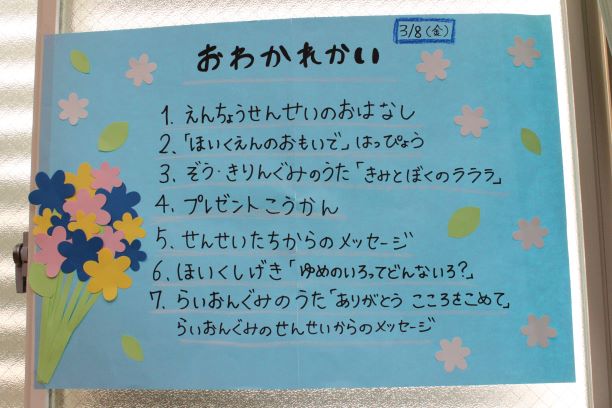 3/8(金)
おわかれかい
1. えんちょうせんせいのおはなし
2.「ほいくえんのおもいで」はっぴょう
3. ぞう・きりんぐみのうた「きみとぼくのラララ」
4. プレゼントこうかん
5. せんせいたちからのメッセージ
6. ほいくしげき「ゆめのいろってどんないろ?」
7. らいおんぐみのうた「ありがとう こころをこめて」
らいおんぐみのせんせいからのメッセージ